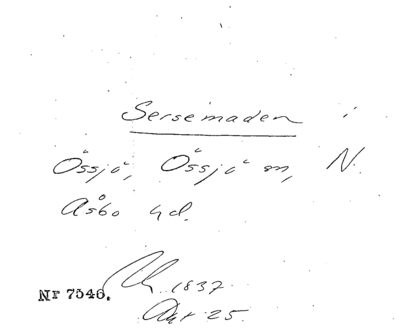 Sersemaden i
Össjö, Össjö sn, N.
Åsbo hd.
1837
Nr 7546. Akt 25